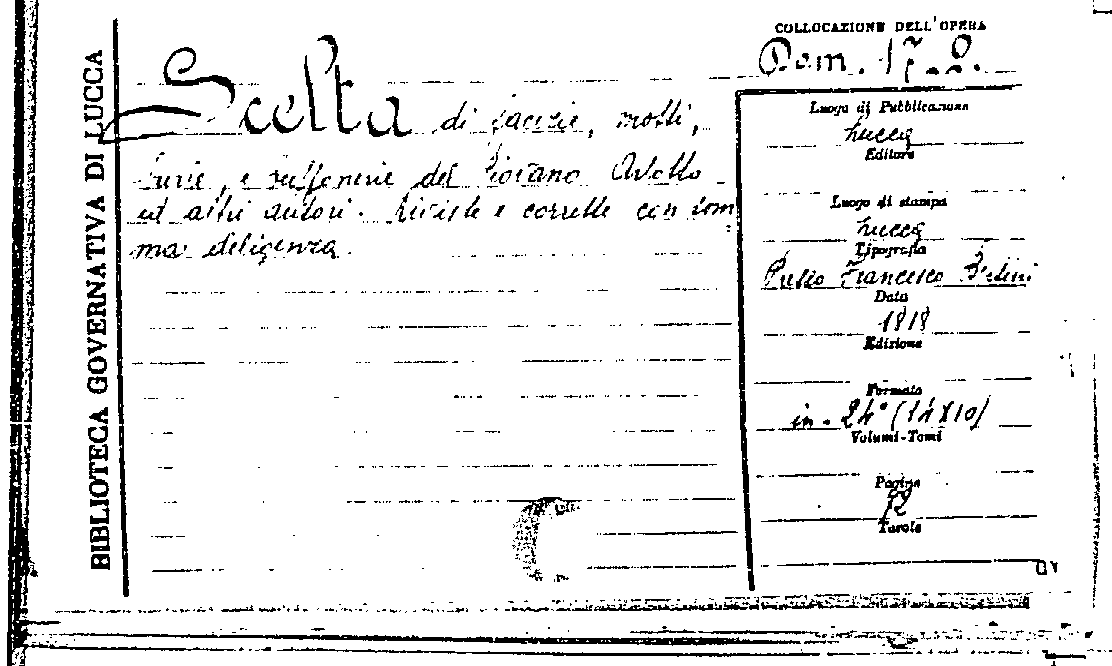 BIBLIOTECA GOVERNATIVA DI LUCCA
COLLOCAZIONE DELL'OPERA
Dom. 17.2.
Scelta di facezie, motti,
burle, e buffonerie del Piovano Arlotto
ed altri autori. Riviste e corrette con som
ma deligenza.
Luogo di Pubblicazione
Lucca
Editore
Luogo di stampa
Lucca
Tipografia
Presso Francesco Bertini
Data
1818
Edizione
Formato
in-24° (14X10)
Volumi-Tomi
Pagine
Tavole